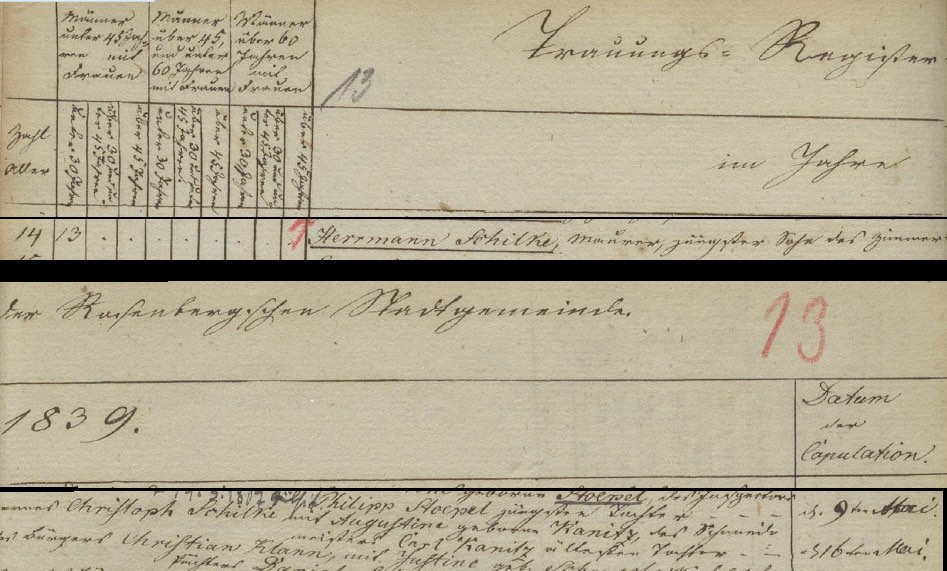 Männer
unter 45 Jah-
ren mit
Frauen
Männer
über 45,
und unter
60 Jahren
mit Frauen
Männer
über 60
Jahren
mit
Frauen
13
Trauungs- Register
Zahl
aller
unter 30 Jahren
über 30 und un-
ter 45 Jahren.
über 45 Jahren
unter 30 Jahren
über 30 und unter
45 Jahren.
über 45 Jahren
unter 30 Jahren
über 30 und un-
ter 45 Jahren.
über 45 Jahren
im Jahre
14 13 . . . . . . . . 1 Herrmann Schilke, Maurer, jüngster Sohn des Zimmer-
der Rosenbergschen Stadtgemeinde.
13
1839.
Datum
der
Copulation.
geborne Stoepel, des Inspectors
Christoph Schilke mit Philipp Stoepel jüngsten Tochter - - - d. 9ten Mai.
Augustine geborne Kanitz, des Schmiede
Bürgers Christian Klann, meisters Carl Kanitz ältesten Tochter - - d. 16ten Mai.
mit Justine geb.